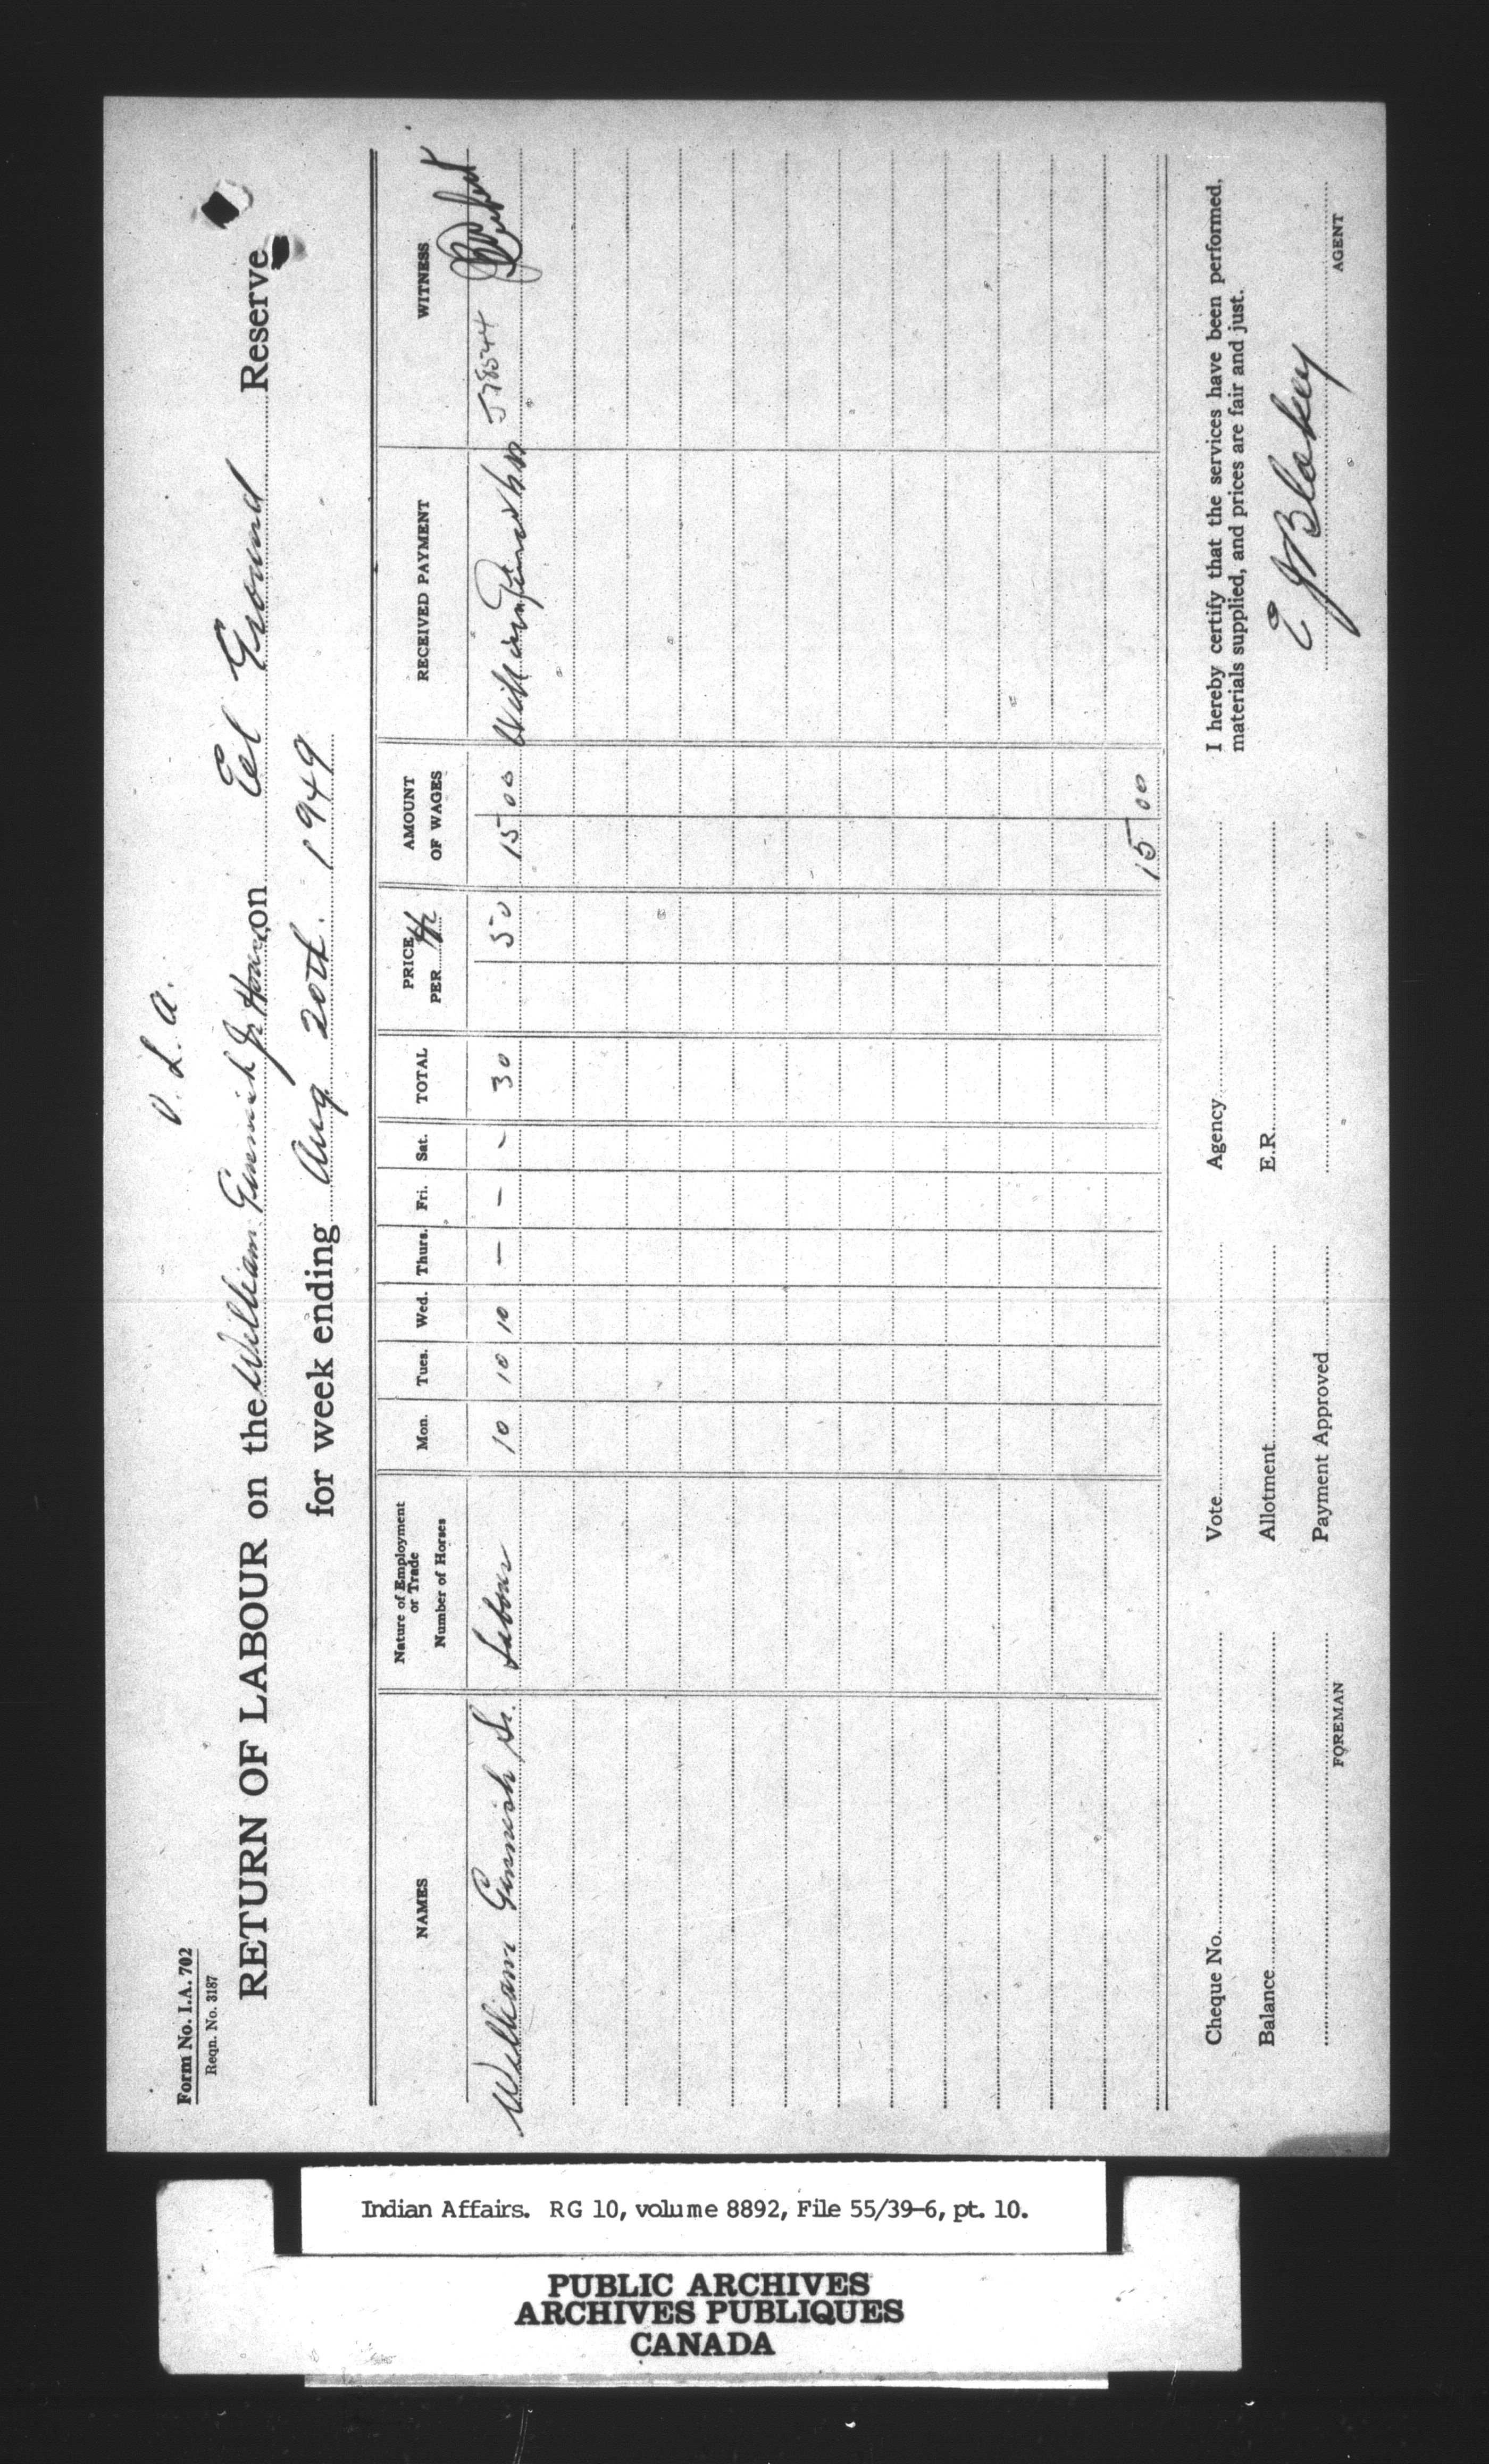 Form No. I.A. 702
Reqn. No. 3187
V. L. A.
RETURN OF LABOUR on the William Ginnish Jr House on Eel Ground Reserve
for week ending Aug 20th. 1949
NAMES Nature of Employment or Trade Number of Horses Mon. Tues. Wed. Thurs. Fri. Sat. TOTAL PRICE PER AMOUNT OF WAGES RECEIVED PAYMENT WITNESS
William Ginnish Sr. Labour 10 10 10 — — - 30 50 15 00 William 57854
15 00
Cheque No. Vote Agency I hereby certify that the services have been performed,
materials supplied, and prices are fair and just.
Balance Allotment E.R.
E J Blakey
Payment Approved
FOREMAN AGENT
Indian Affairs. RG 10, volume 8892, File 55/39-6, pt. 10.
PUBLIC ARCHIVES
ARCHIVES PUBLIQUES
CANADA